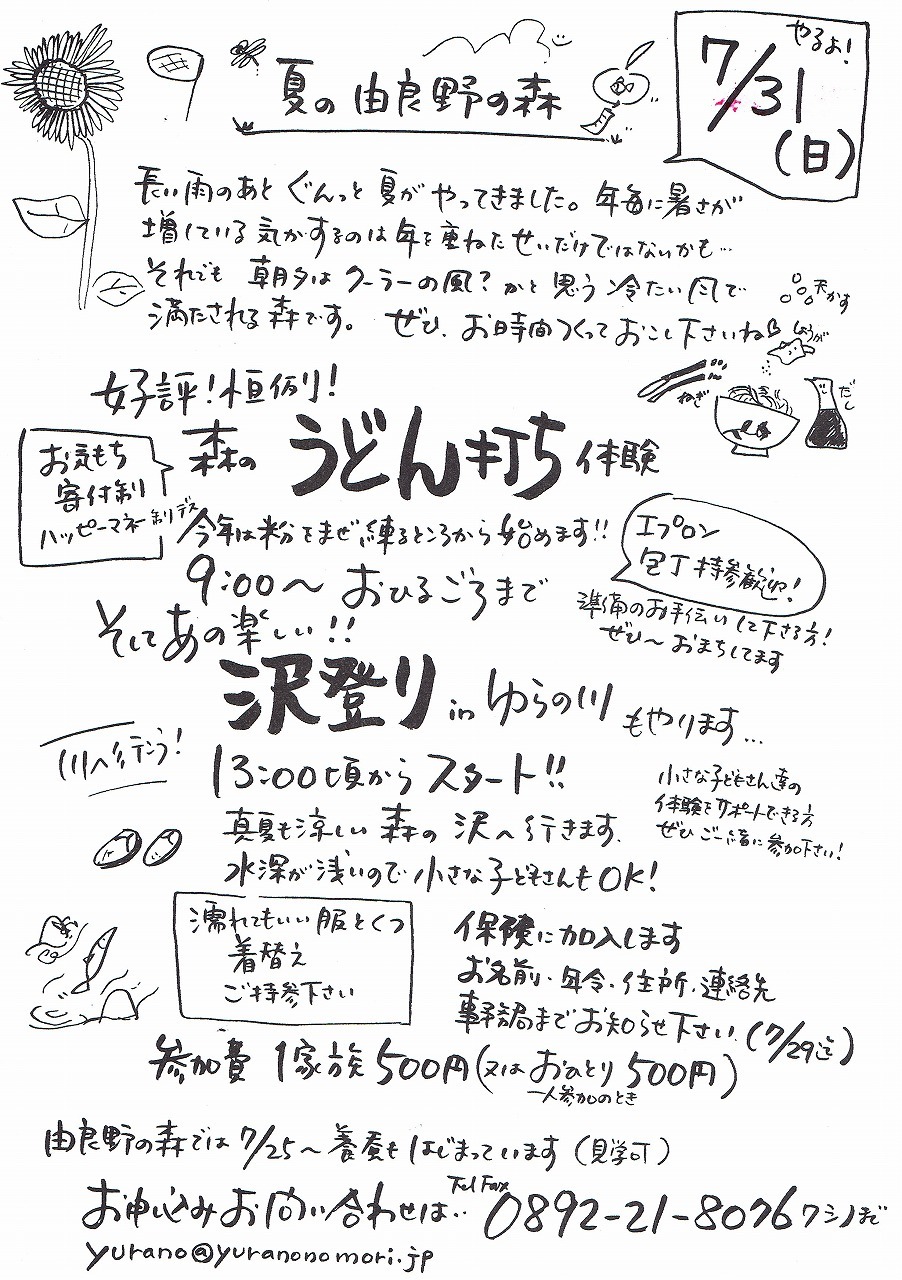 やるよ!
7/31
(日)
夏の由良野の森
長い雨のあと ぐんっと 夏が やってきました。年毎に暑さが
増している気がするのは年を重ねたせいだけではないかも…
それでも 朝夕は クーラーの風?かと 思う 冷たい風で
満たされる森です。 ぜひ、お時間つくっておこし下さいね
天かす
しょうが
ねぎ
だし
好評!恒例!
森の うどん打ち 体験
お気もち
寄付制
ハッピーマネー制デス
今年は粉をまぜ練るところから始めます!!
9:00〜 おひるごろまで
エプロン
包丁持参歓迎!
準備のお手伝いして下さる方!
ぜひ〜おまちしてます
そしてあの楽しい!!
沢登り in ゆらの川 もやります…
川へ行こう!
13:00頃から スタート!!
真夏も涼しい 森の 沢へ行きます、
水深が浅いので 小さな子どもさんもOK!
小さな子どもさん達の
体験をサポートできる方
ぜひご一緒に参加下さい!
濡れてもいい服とくつ
着替え
ご持参下さい
保険に加入します
お名前・年令・住所・連絡先
事務局までお知らせ下さい、(7/29迄)
参加費 1家族 500円(又は おひとり 500円)
一人参加のとき
由良野の森では 7/25〜養蚕もはじまっています(見学可)
お申込みお問い合わせは‥ Tel Fax 0892-21-8076 ワシノまで
yurano@yuranonomori.jp